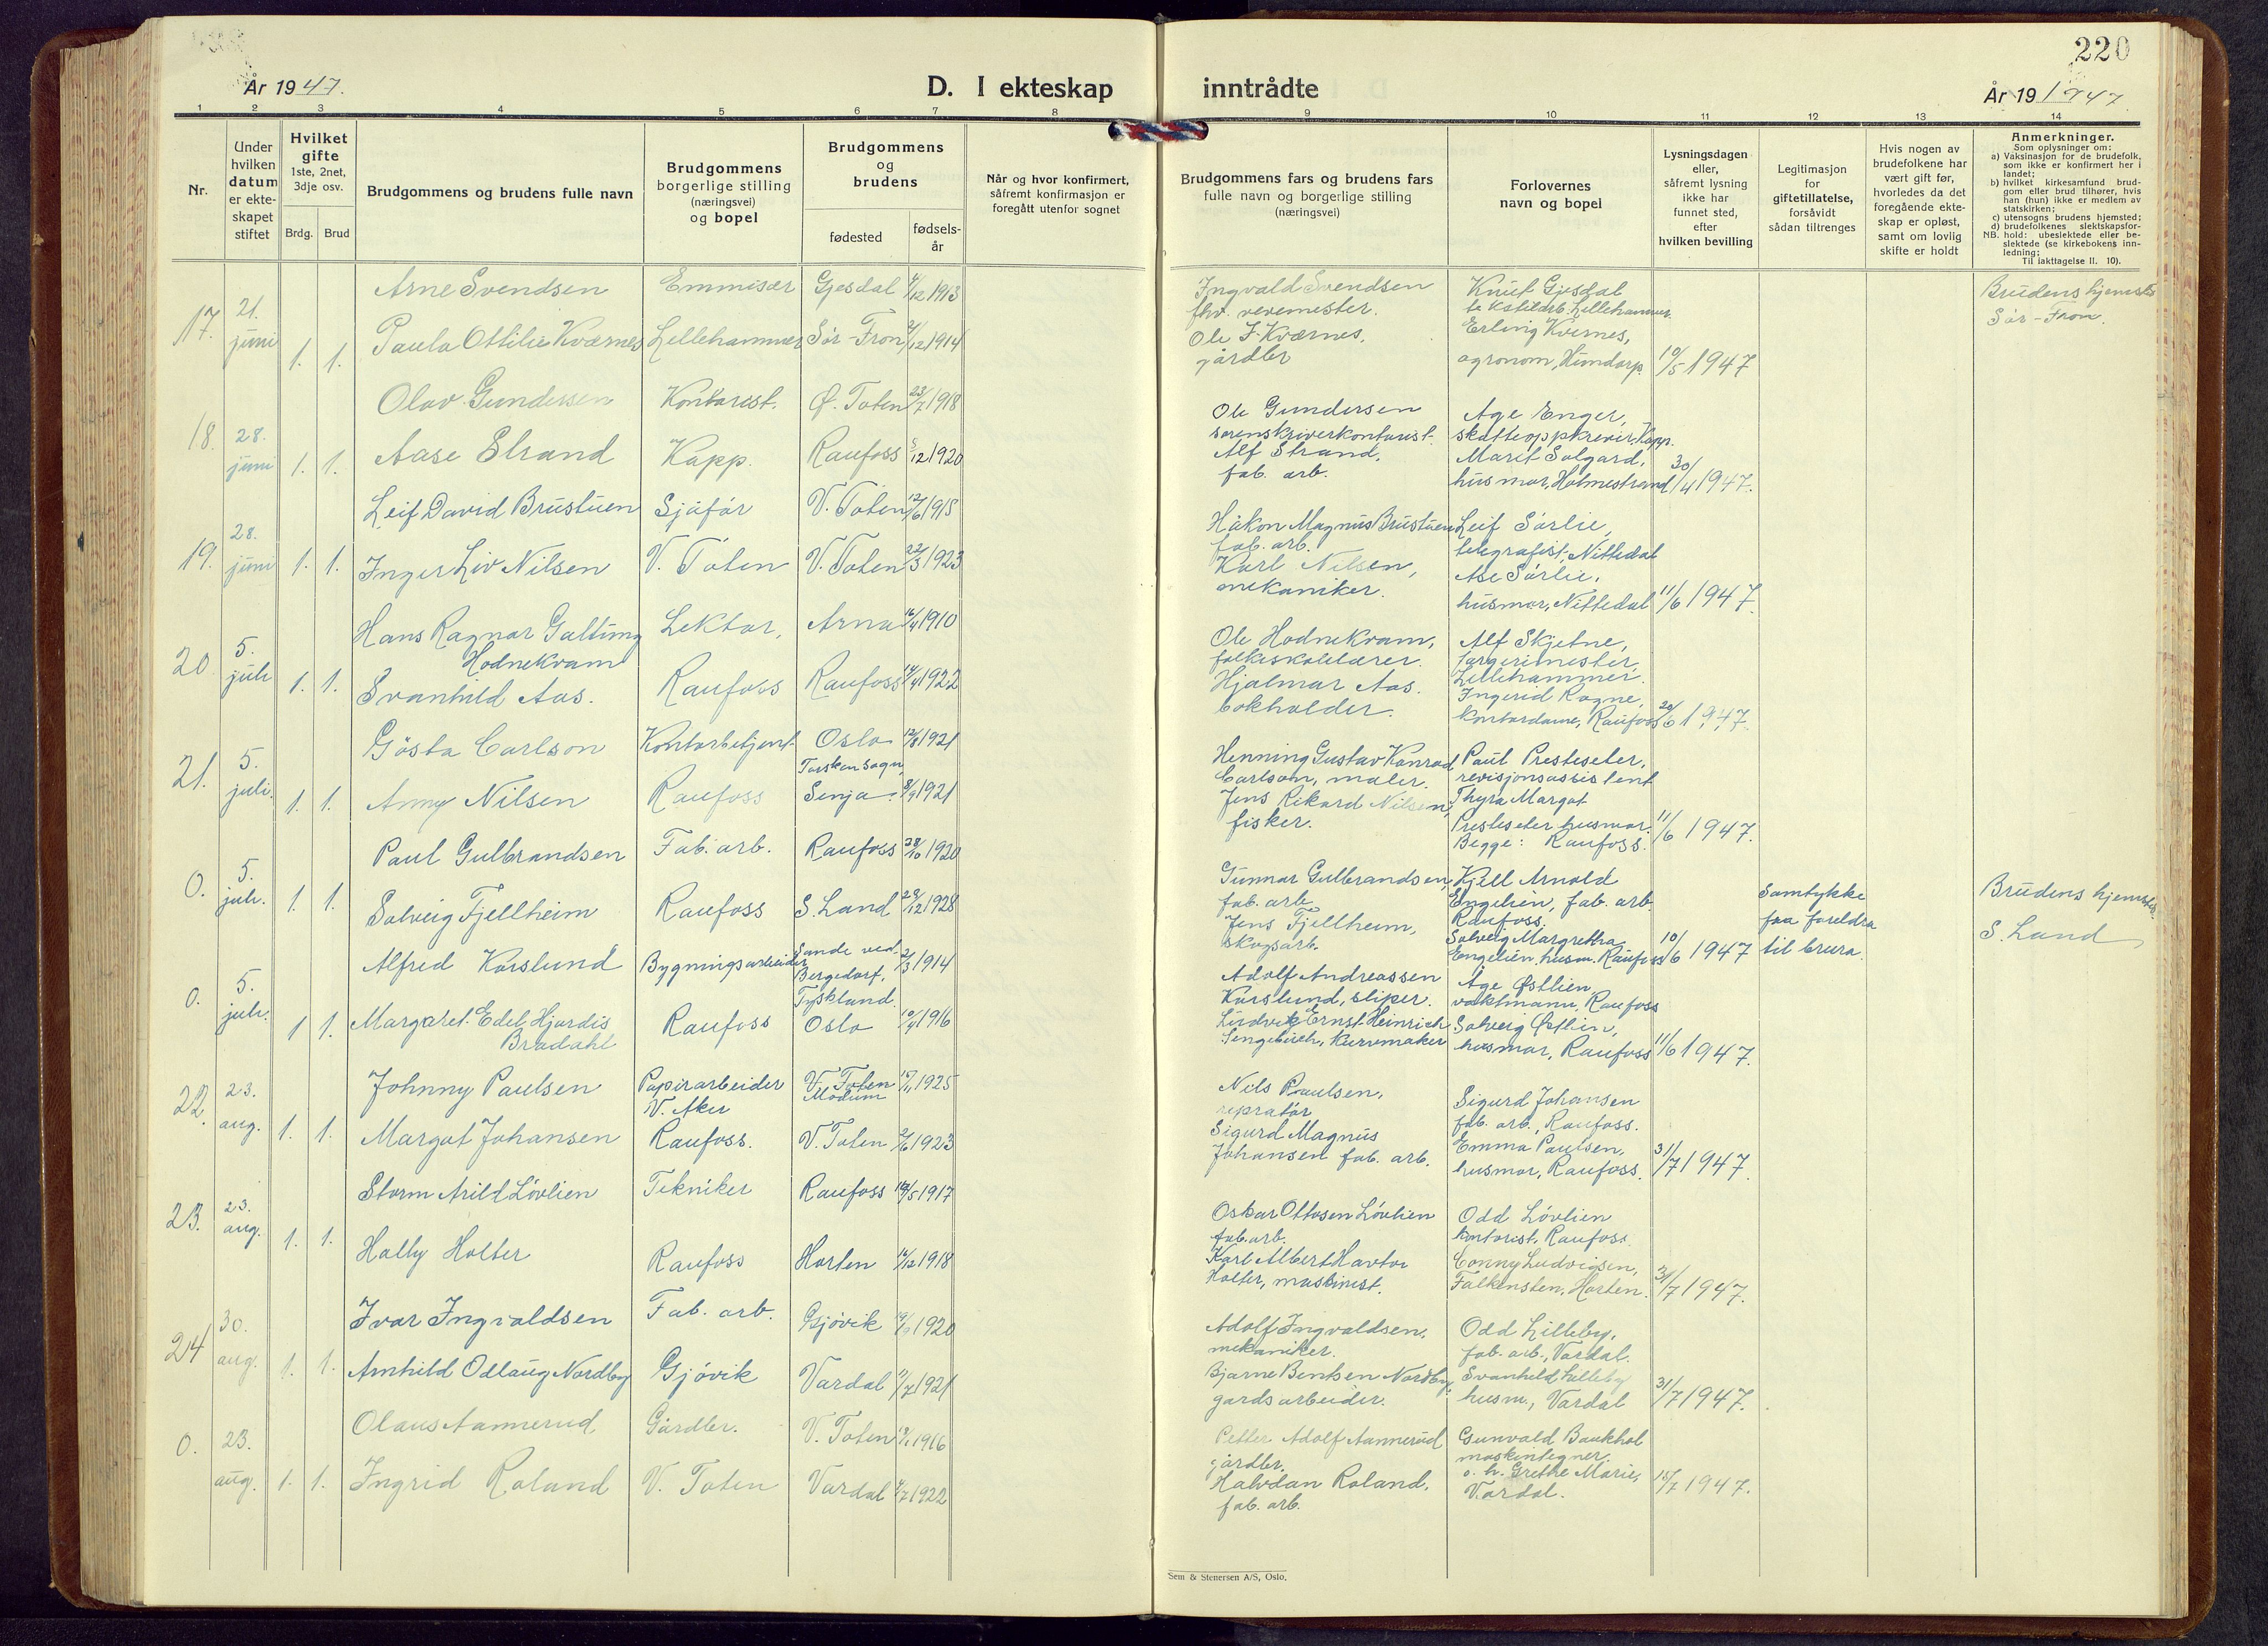 220
År 1947.
D. I ekteskap inntrådte
År 19 1947
1 2 3 4 5 6 7 8 9 10 11 12 13 14
Nr.
Under hvilken datum er ekteskapet stiftet
Hvilket gifte 1ste, 2net, 3dje osv.
Brdg. Brud
Brudgommens og brudens fulle navn
Brudgommens borgerlige stilling (næringsvei) og bopel
Brudgommens og brudens
fødested
fødsels-år
Når og hvor konfirmert, såfremt konfirmasjon er foregått utenfor sognet
Brudgommens fars og brudens fars fulle navn og borgerlige stilling (næringsvei)
Forlovernes navn og bopel
Lysningsdagen eller, såfremt lysning ikke har funnet sted, efter hvilken bevilling
Legitimasjon for giftetillatelse, forsåvidt sådan tiltrenges
Hvis nogen av brudefolkene har vært gift før, hvorledes da det foregående ekteskap er opløst, samt om lovlig skifte er holdt
Anmerkninger.
Som oplysninger om:
a) Vaksinasjon for de brudefolk, som ikke er konfirmert her i landet;
b) hvilket kirkesamfund brudgom eller brud tilhører, hvis han (hun) ikke er medlem av statskirken;
c) utensogns brudens hjemsted;
d) brudefolkenes slektskapsforhold: ubeslektede eller beslektede (se kirkebokens innledning;
NB.
Til iakttagelse II. 10).
17. 21. juni 1. 1.
Arne Svendsen Emmisær Gjesdal 4/12 1913
Paula Ottilie Kværnes Lillehammer Sør-Fron 2/12 1914
Ingvald Svendsen
fhv. vevemester.
Ole J. Kværnes,
gårdbr
Knut Gjesdal
tekstilarb. Lillehammer.
Erling Kværnes,
agronom, Hundorp.
10/5 1947
Brudens hjemsted
Sør-Fron.
18. 28. juni 1. 1.
Olav Gundersen Kontorist. Ø. Toten 23/7 1918
Aase Strand Kapp. Raufoss 5/12 1920
Ole Gundersen
sorenskriverkontorist.
Alf Strand,
fab. arb.
Age Enger,
skatteoppkrever. Kapp.
Marit Solgard,
husmor, Holmestrand
30/4 1947.
19. 28. juni 1. 1.
Leif David Brustuen Sjåfør V. Toten 12/6 1915
Inger Liv Nilsen V. Toten V. Toten 22/3 1923
Håkon Magnus Brustuen
fab. arb.
Karl Nilsen,
mekaniker.
Leif Sørlie,
telegrafist, Nittedal
Åse Sørlie,
husmor, Nittedal
11/6 1947.
20. 5. juli 1. 1.
Hans Ragnar Galtung
Hodnekvam
Lektor, Arna 16/4 1910
Svanhild Aas. Raufoss Raufoss 14/4 1922
Ole Hodnekvam,
folkeskolelærer.
Hjalmar Aas.
bokholder.
Alf Skjetne,
fargerimester,
Lillehammer.
Ingerid Rogne,
kontordame, Raufoss
20/6 1947.
21. 5. juli. 1. 1.
Gösta Carlson Kontorbetjent Oslo 12/8 1921
Anny Nilsen Raufoss Torsken sogn, Senja. 8/9 1921
Henning Gustav Konrad
Carlson, maler.
Jens Rikard Nilsen,
fisker.
Paul Presteseter,
revisjonsassistent
Thyra Margot
Presteseter husmor.
Begge: Raufoss.
11/6 1947.
0. 5. juli. 1. 1.
Paul Gulbrandsen Fab. arb. Raufoss 28/10 1920
Solveig Fjellheim Raufoss S. Land 28/12 1928
Gunnar Gulbrandsen,
fab. arb.
Jens Fjellheim,
skogsarb.
Kjell Arnold
Engelien, fab. arb.
Raufoss.
Solveig Margretha
Engelien, husm. Raufoss
10/6 1947
Samtykke
fra foreldra
til brura.
Brudens hjemsted.
S. Land
0. 5. juli. 1 1.
Alfred Korslund Bygningsarbeider Sande ved Bergedorf, Tyskland. 2/3 1914
Margaret Edel Hjørdis
Bradahl
Raufoss Oslo 10/4 1916
Adolf Andreassen
Korslund, sliper.
Ludvig Ernst Heinrich
Sengebusch, kurvmaker
Åge Østlien
vaktmann, Raufoss
Solveig Østlien,
husmor, Raufoss
11/6 1947.
22. 23. aug. 1. 1.
Johnny Paulsen Papirarbeider V. Aker V. Toten Modum 17/11 1925
Margot Johansen Raufoss. V. Toten 2/6 1923
Nils Paulsen,
reparatør
Sigurd Magnus
Johansen fab. arb.
Sigurd Johansen
fab. arb., Raufoss.
Emma Paulsen,
husmor, Raufoss.
31/7 1947.
23. 23. aug. 1. 1.
Storm Arild Løvlien Tekniker Raufoss 18/5 1917
Hally Holter Raufoss Horten 16/12 1918
Oskar Ottosen Løvlien
fab. arb.
Karl Albert Havtor
Holter, maskinist.
Odd Løvlien
kontorist, Raufoss.
Conny Ludvigsen,
Falkensten, Horten.
31/7 1947.
24 30. aug. 1. 1.
Ivar Ingvaldsen Fab. arb. Gjøvik 19/9 1920
Arnhild Odlaug Nordby Gjøvik Vardal 11/7 1921
Adolf Ingvaldsen,
mekaniker.
Bjarne Bentsen Nordby,
gårdsarbeider.
Odd Lilleby,
fab. arb., Vardal.
Svanhild Lilleby
husm., Vardal
31/7 1947.
0. 23. aug. 1. 1.
Olaus Aannerud Gårdbr. V. Toten 19/1 1916
Ingrid Roland V. Toten Vardal 4/7 1922
Petter Adolf Aannerud
gårdbr.
Halvdan Roland,
fab. arb.
Gunvald Baukhol
maskintegner.
o. h. Grethe Marie,
Vardal.
15/7 1947.
Sem & Stenersen A/S, Oslo.